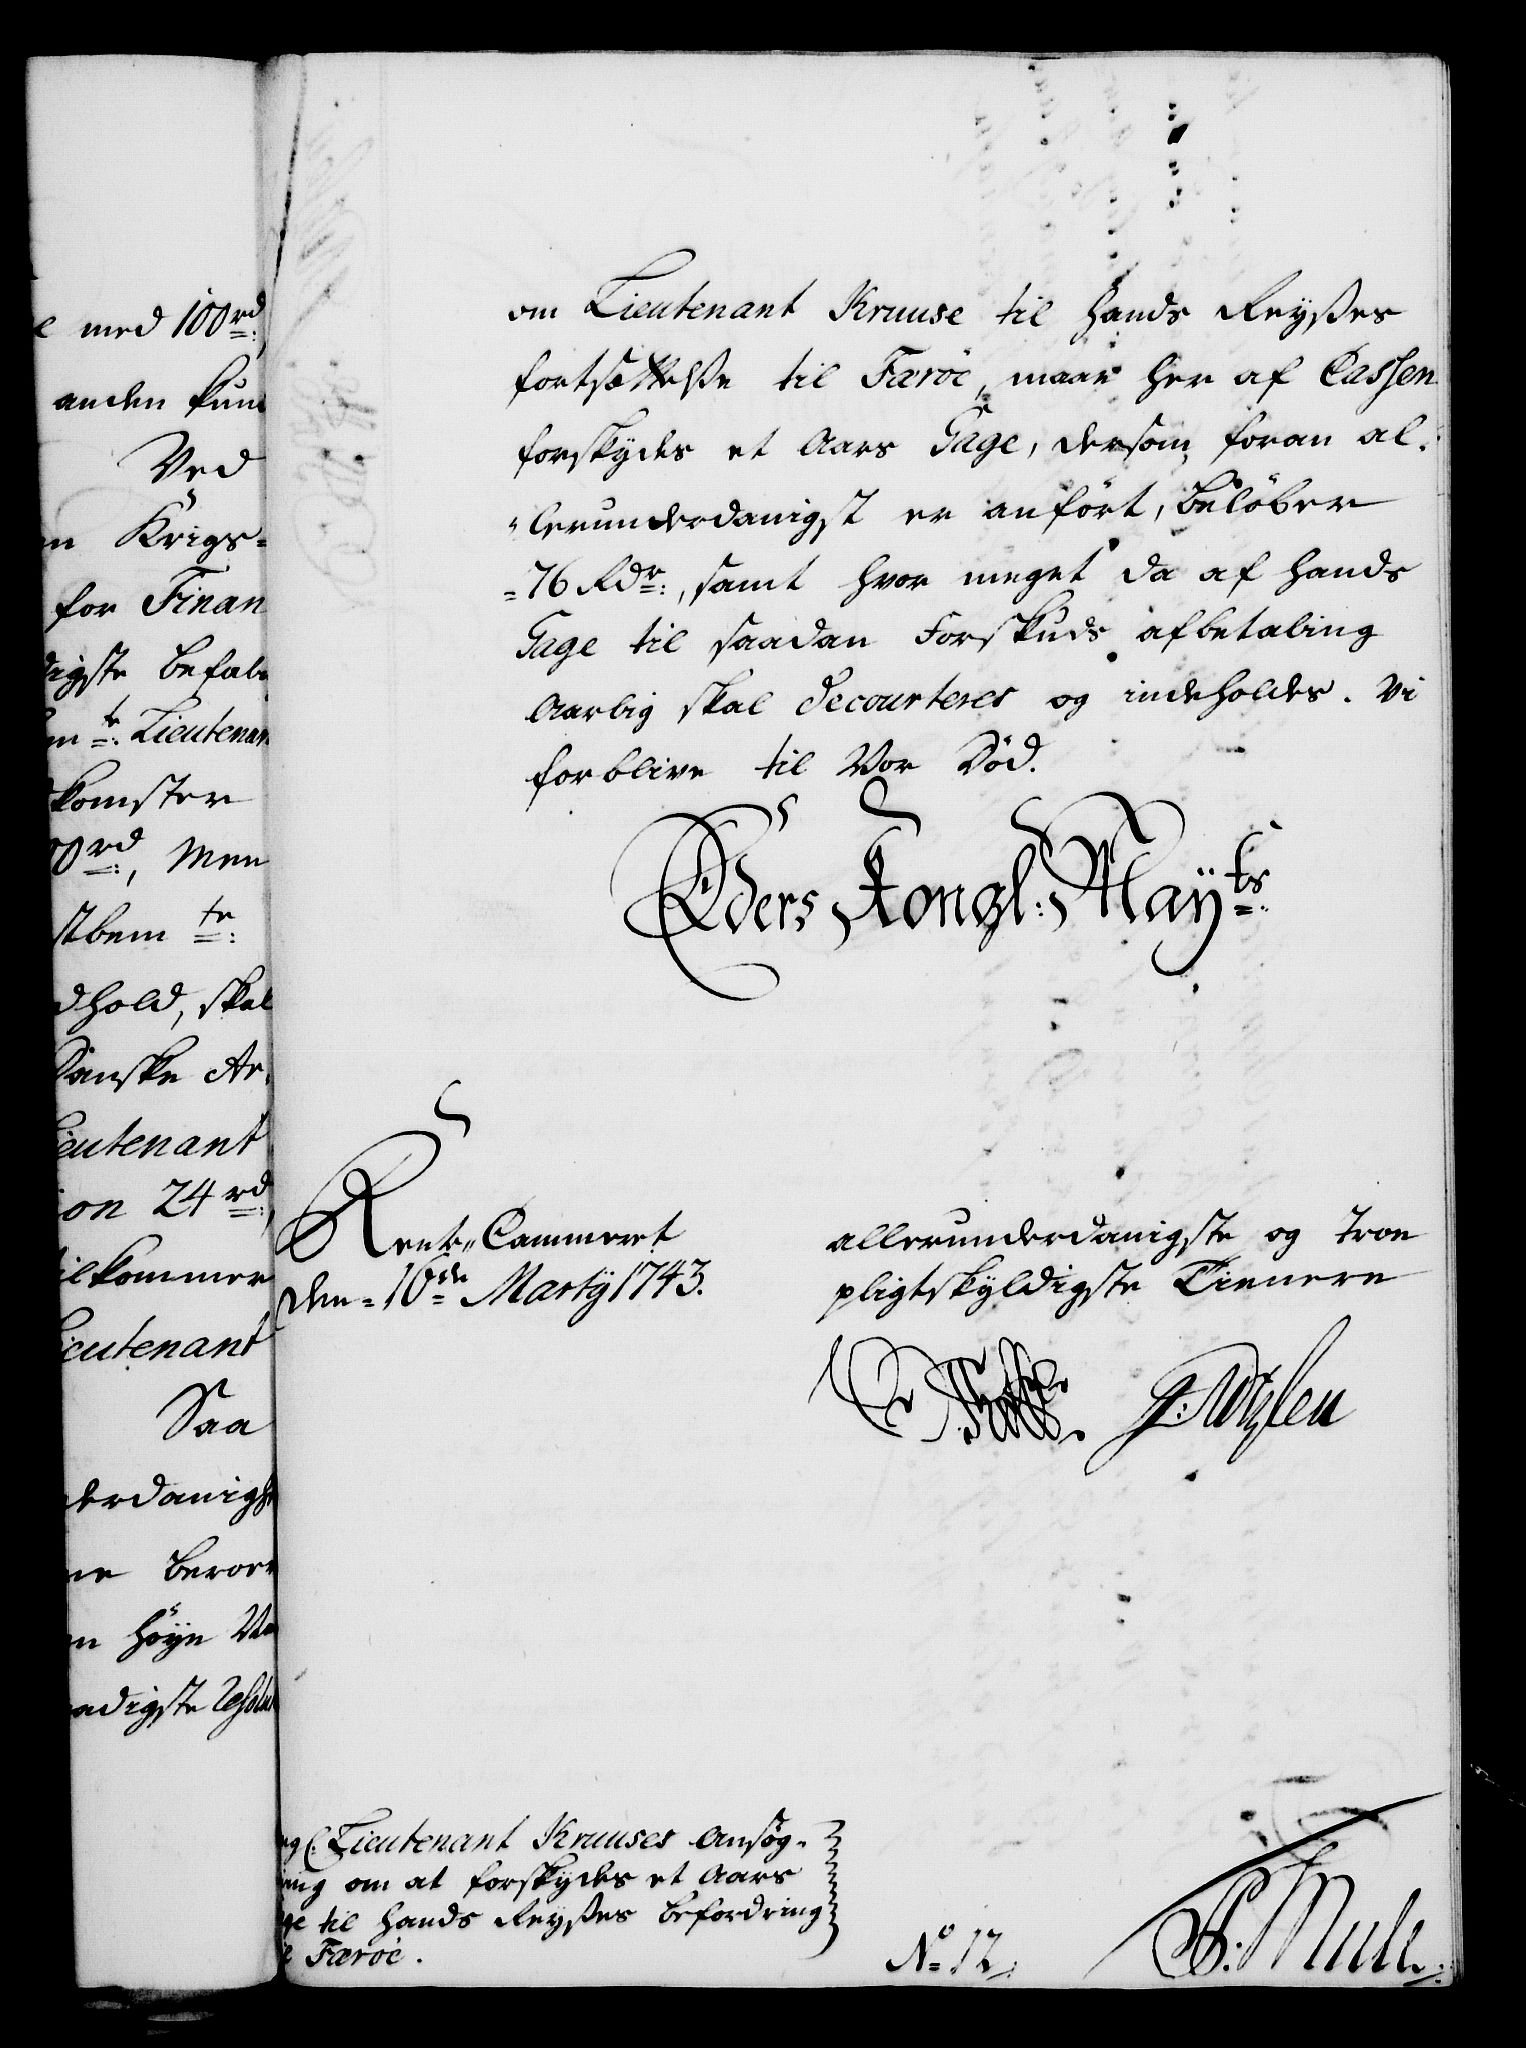 e med 100rd:,
anden kun
Ved
en Krigs-
for Finan
digste befal
em te: Lieutenan
komster
00rd:, Men
stbem te:
dhold, skal
Danske Ar,
Lieutenant
ion 24rd:,
ilkommer
Lieutenant
Saa
derdanigst
ne beroer
en höye Vel
aadigste Resolut
om Lieutenant Kruuse til hands Reyßes
fortsættelße til Færöe, maae her af Cassen
forskydes et Aars Gage, dersom, foran al-
lerunderdanigst er anfört, belöber
76 Rdr:, samt hvor meget da af hands
Gage til saadan Forskuds afbetaling
Aarlig skal decourteres og indeholdes. Vi
forblive til Vor Död.
Eders Kongl: Mayts:
Rente-Cammeret
den 16de Martij 1743.
allerunderdanigste og troe
pligtskyldigste Tienere
ng(: Lieutenant Kruuses Ansög-
ning om at forskydes et Aars
ge til hands Reyßes befordring
l Færöe.
No 12.